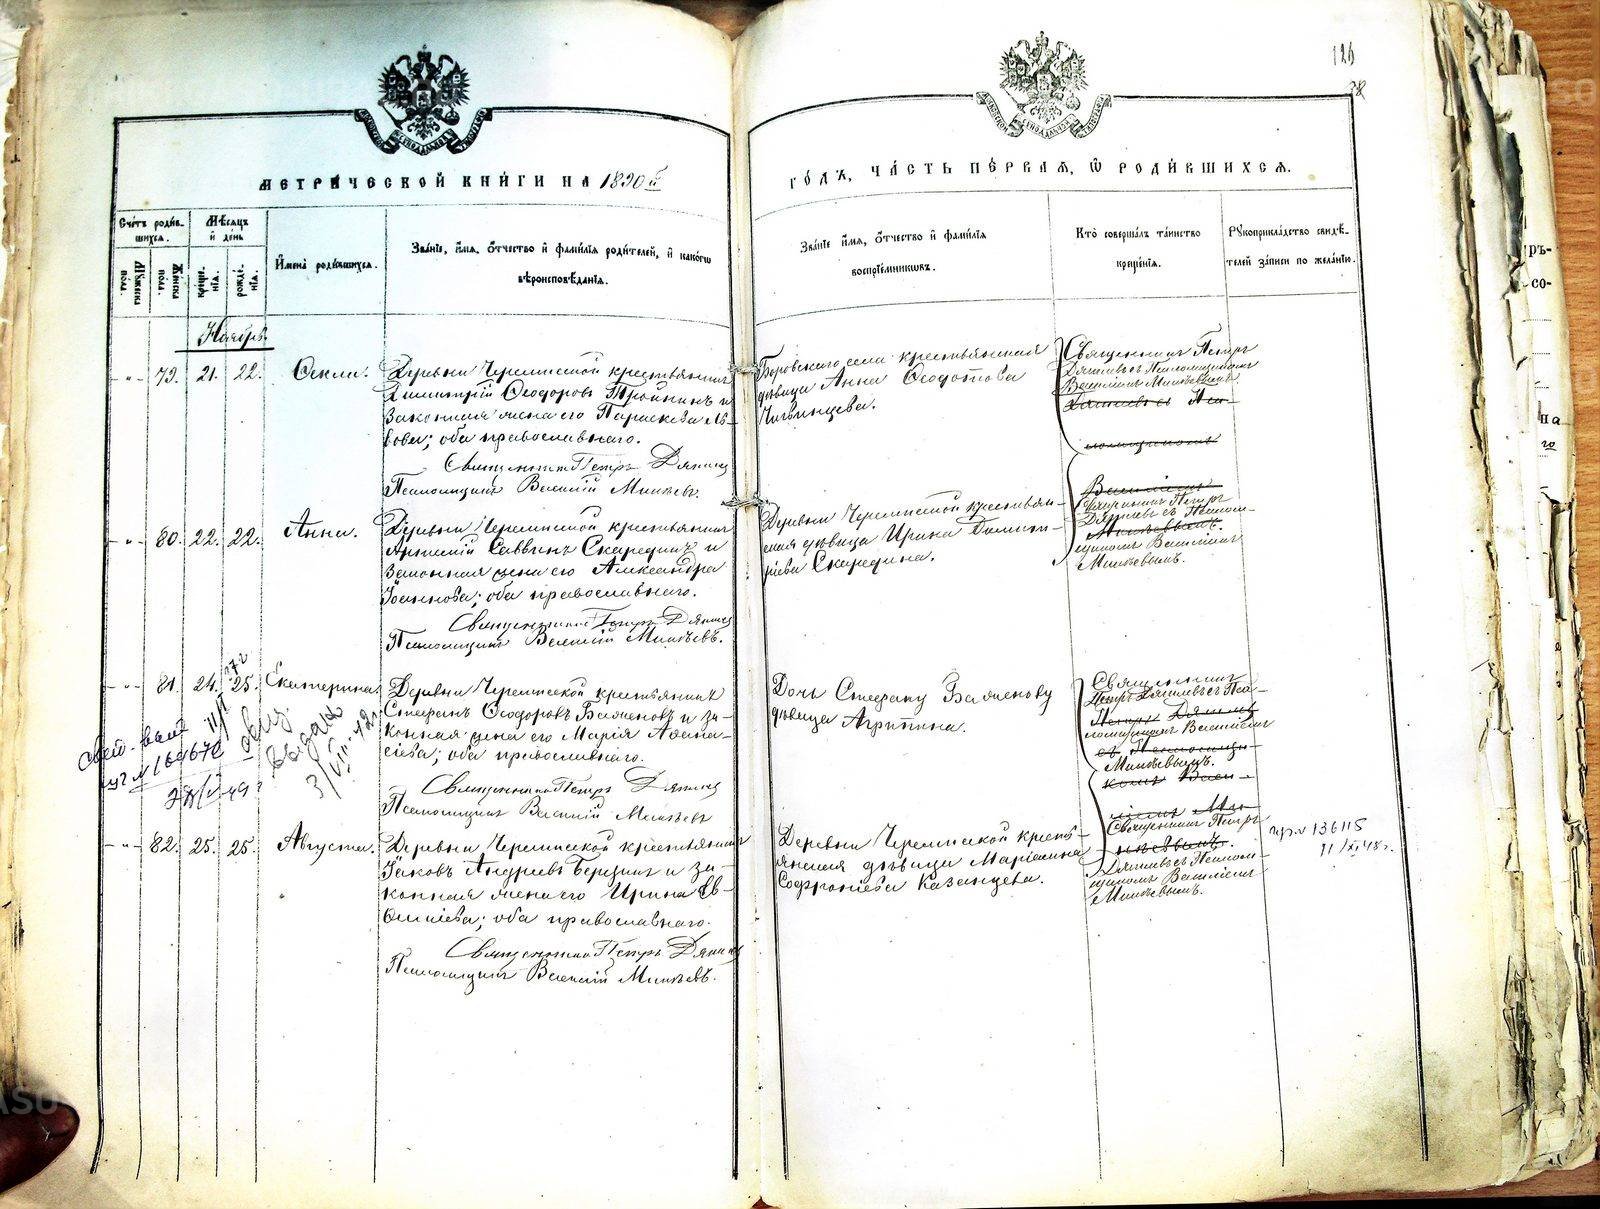 126
38
МЕТРИ́ЧЕСКОЙ КНИ́ГИ НА 1890 й
ГО́ДЪ, ЧА́СТЬ ПЕ́РВАЯ, Ѡ РОДИ́ВШИХСЯ.
Сче́тъ роди́в-
шихся.
Му́жеска
пола.
Же́нска
пола.
Мѣ́сяцъ
и́ де́нь
креще́-
нія.
рожде́-
нія.
И́мена роди́вшихся.
Зва́ніе, и́мя, о́тчество и́ фами́лія роди́телей, и́ како́гѡ
вѣроисповѣ́данія.
Зва́ніе и́мя, о́тчество и́ фами́лія
воспріе́мникѡвъ.
Кто̀ соверша́лъ та́инство
креще́нія.
Рукоприкла́дство свидѣ́-
телей за́писи по жела́нію.
Ноябрь.
-"- 79. 21. 22. Ѳекла.
Деревни Черемисской крестьянинъ
Димитрій Ѳеодоровъ Тройнинъ и
законная жена его Параскева Ль-
вова; оба православнаго.
Священникъ Петръ Дягилевъ
Псаломщикъ Василій Михѣевъ.
Боровскаго села крестьянская
дѣвица Анна Ѳеодотова
Священникъ Петръ
Дягилевъ съ Псаломщикомъ
Василіемъ Михѣевымъ.
-"- 80. 22. 22. Анна.
Деревни Черемисской крестьянинъ
Артемій Саввинъ Скарединъ и
законная жена его Александра
Іоаннова; оба православнаго.
Священникъ Петръ Дягилевъ
Псаломщикъ Василій Михѣевъ.
Деревни Черемисской крестьян-
ская дѣвица Ирина Димит-
ріева Скаредина.
Священникъ Петръ
Дягилевъ съ Псалом-
щикомъ Василіемъ
Михѣевымъ.
-"- 81. 24. 25. Екатерина
Деревни Черемисской крестьянинъ
Стефанъ Ѳеодоровъ Баженовъ и за-
конная жена его Марія Аѳана-
сіева; оба православнаго.
Священникъ Петръ Дягилевъ
Псаломщикъ Василій Михѣевъ
Дочь Стефану Баженову
дѣвица Агриппина.
Священникъ
Петръ Дягилевъ съ Пса-
ломщикомъ Василіемъ
Михѣевымъ.
выдана
-"- 82. 25. 25. Августа.
Деревни Черемисской крестьянинъ
Іаковъ Андреевъ Березинъ и за-
конная жена его Ирина Ев-
ѳиміева; оба православнаго.
Священникъ Петръ Дягилевъ
Псаломщикъ Василій Михѣевъ.
Деревни Черемисской кресть-
янская дѣвица Маріанна
Софроніева Казанцева.
Священникъ Петръ
Дягилевъ съ Псалом-
щикомъ Василіемъ
Михѣевымъ.
136115
11/XI 48 г.